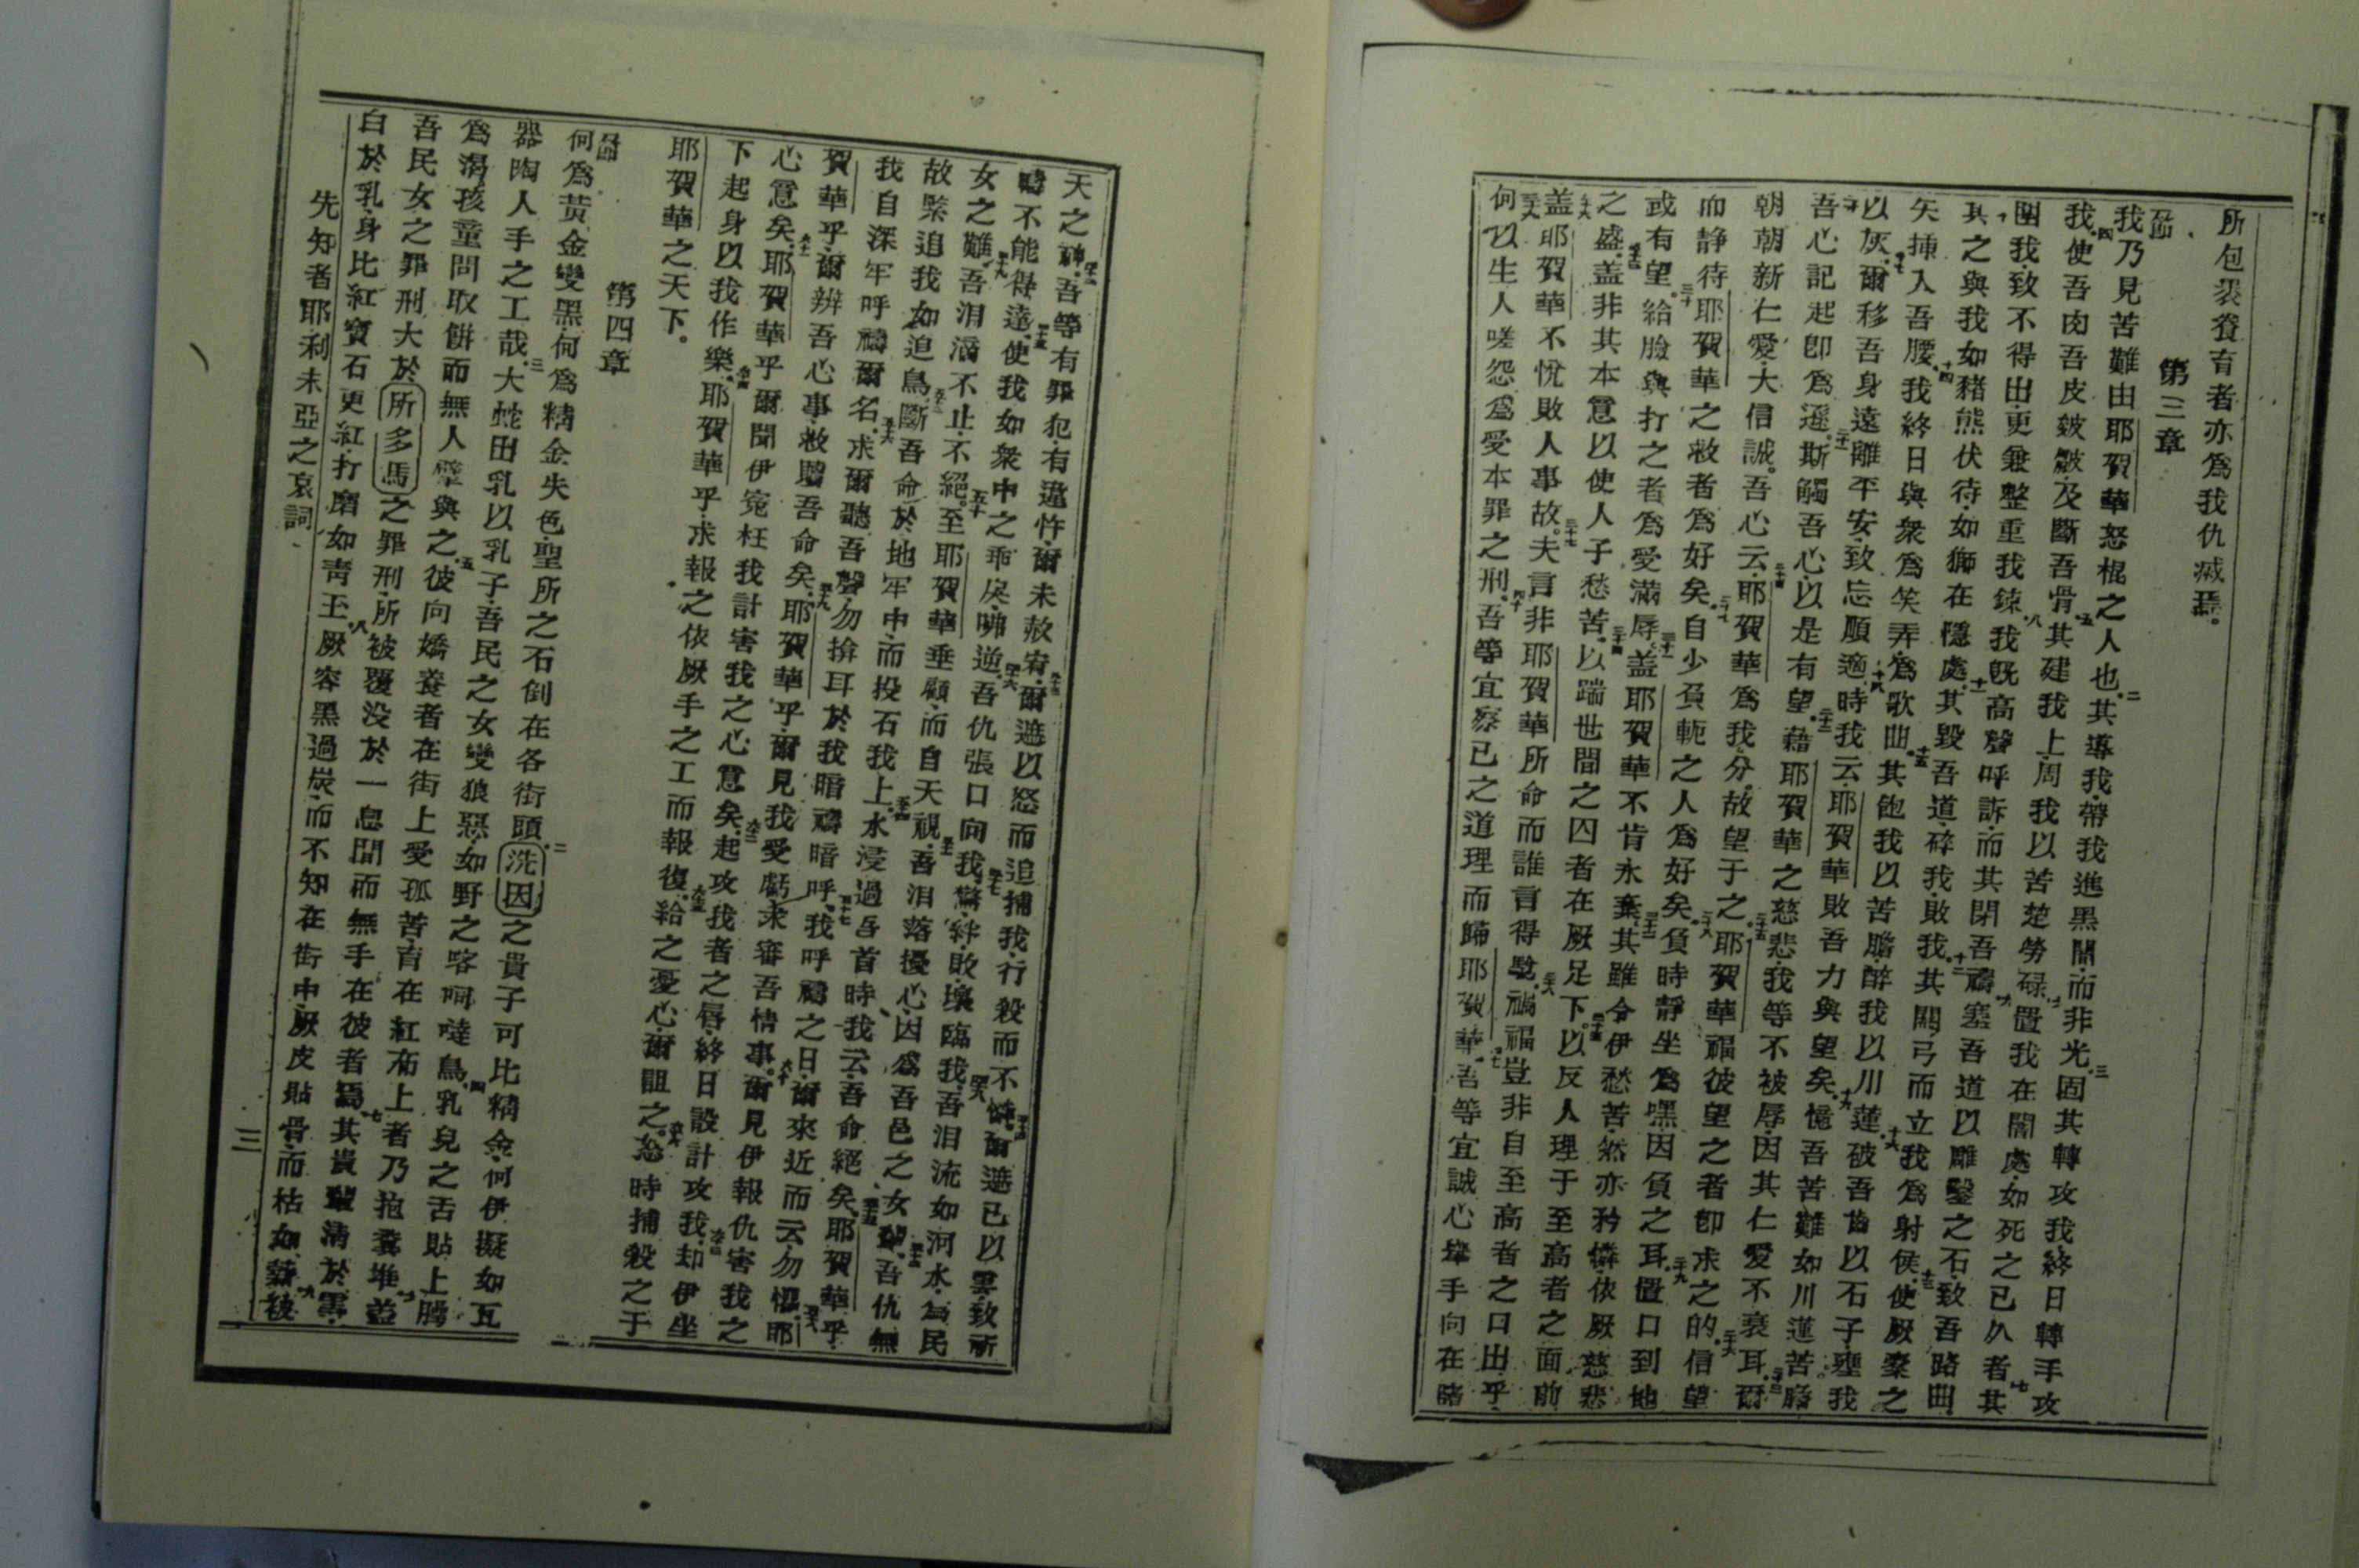 所包裘養育者亦爲我仇滅焉。
第三章
一節 我乃見苦難由耶賀華怒棍之人也。二其導我、帶我進黑闇、而非光。三固其轉攻我、終日轉手攻
我。四使吾肉吾皮皴皺、及斷吾骨。五其建我上、周我以苦楚勞碌。六置我在闇處、如死之已久者。七其
圍我、致不得出、更兼整重我鍊。八我既高聲呼訴、而其閉吾禱。九塞吾道以雕鑿之石、致吾路曲。
十其之與我如豬熊伏待、如獅在隱處。十一其毀吾道、碎我、敗我。十二其關弓而立我爲射侯。十三使厥橐之
矢揷入吾腰。十四我終日與衆爲笑弄、爲歌曲。十五其飽我以苦膽、醉我以川蓮。十六破吾齒以石子、壅我
以灰。十七爾移吾身遠離平安、致忘順適。十八時我云、耶賀華敗吾力與望矣。十九憶吾苦難如川蓮苦膽。
二十吾心記起卽爲遜。二十一斯觸吾心、以是有望。二十二藉耶賀華之慈悲、我等不被辱、因其仁愛不衰耳。二十三爾
朝朝新仁愛、大信誠。二十四吾心云、耶賀華爲我分、故望于之。二十五耶賀華福彼望之者、卽求之的。二十六信望
而静待耶賀華之救者爲好矣。二十七自少負軛之人爲好矣。二十八負時靜坐爲嘿、因負之耳。二十九置口到地
或有望。三十給臉與打之者爲受滿辱。三十一盖耶賀華不肯永棄。三十二其雖令伊愁苦、然亦矜憐、依厥慈悲
之盛。三十三盖非其本意以使人子愁苦。三十四以踹世間之囚者在厥足下。三十五以反人理于至高者之面前
三十六盖耶賀華不悅敗人事故。三十七夫言非耶賀華所命而誰言得騐。三十八禍福豈非自至高者之口出乎。
三十九何以生人嗟怨、爲受本罪之刑。四十吾等宜察己之道理而歸耶賀華。四十一吾等宜誠心擧手向在諸
天之神。四十二吾等有罪犯、有違忤、爾未赦宥。四十三爾遮以怒而追捕我、行殺而不憐。四十四爾遮己以雲、致祈
禱不能得達。四十五使我如衆中之乖戾咈逆。四十六吾仇張口向我。四十七驚、絆、敗、壞臨我。四十八吾泪流如河水、爲民
女之難。四十九吾泪滴不止、不絕。五十至耶賀華垂顧、而自天視。五十一吾泪落擾心、因爲吾邑之女輩。五十二吾仇無
故緊追我如追鳥。五十三斷吾命於地牢中、而投石我上。五十四水浸過吾首時、我云、吾命絕矣。五十五耶賀華乎、
我自深牢呼禱爾名。五十六求爾聽吾聲、勿揜耳於我暗禱暗呼。五十七我呼禱之日、爾來近而云、勿懼。五十八耶
賀華乎、爾辨吾心事、救贖吾命矣。五十九耶賀華乎、爾見我受虧、求審吾情事。六十爾見伊報仇害我之
心意矣。六十一耶賀華乎、爾聞伊寃枉我計害我之心意矣。六十二起攻我者之唇、終日設計攻我。六十三却伊坐
下起身以我作樂。六十四耶賀華乎、求報之依厥手之工而報復。六十五給之憂心、爾詛之。六十六怒時捕殺之于
耶賀華之天下。
第四章
一節 何爲黃金變黑、何爲精金失色、聖所之石倒在各街頭。二洗因之貴子可比精金、何伊擬如瓦
器陶人手之工哉。三大蛇田乳以乳子、吾民之女變狼惡、如野之喀呵噠鳥。四乳兒之舌貼上腭
爲渴、孩童問取餅而無人擘與之。五彼向嬌養者在街上受孤苦、育在紅布上者乃抱糞堆。六盖
吾民女之罪刑大於所多馬之罪刑、所被覆没於一息間而無手在彼者焉。七其貴輩淸於雪、
白於乳、身比紅寶石更紅、打磨如靑玉。八厥容黑過炭、而不知在街中、厥皮貼骨、而枯如薪。九被
先知者耶利未亞之哀詞
三